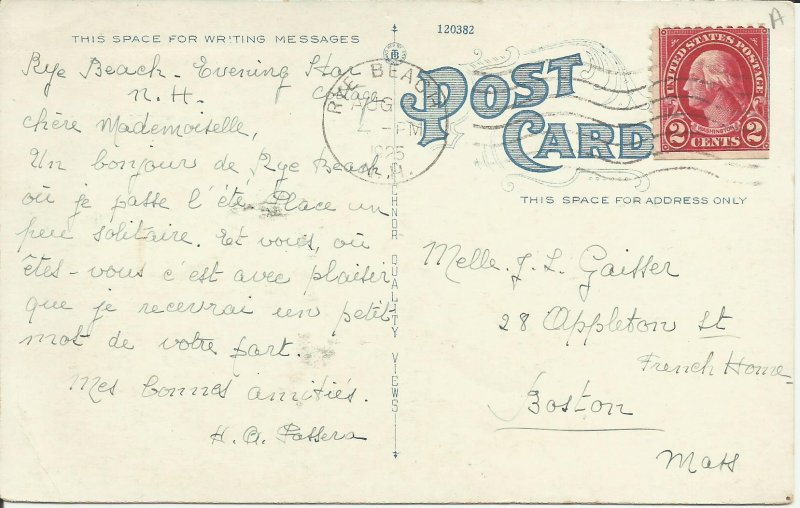 THIS SPACE FOR WRITING MESSAGES
Rye Beach - Evening Star
N. H. Cottage
chère Mademoiselle,
Un bonjour de Rye Beach
où je passe l'été. Place un
peu solitaire. Et vous, où
êtes-vous c'est avec plaisir
que je recevrai un petit
mot de votre part.
Mes bonnes amitiés.
H. A. Passera
TECHNOR QUALITY VIEWS
120382
A
RYE BEACH
AUG
4 - PM
1925
N.H.
POST
CARD
UNITED STATES POSTAGE
WASHINGTON
2 CENTS 2
THIS SPACE FOR ADDRESS ONLY
Melle. J. L. Gaisser
28 Appleton St
French Home
Boston
Mass